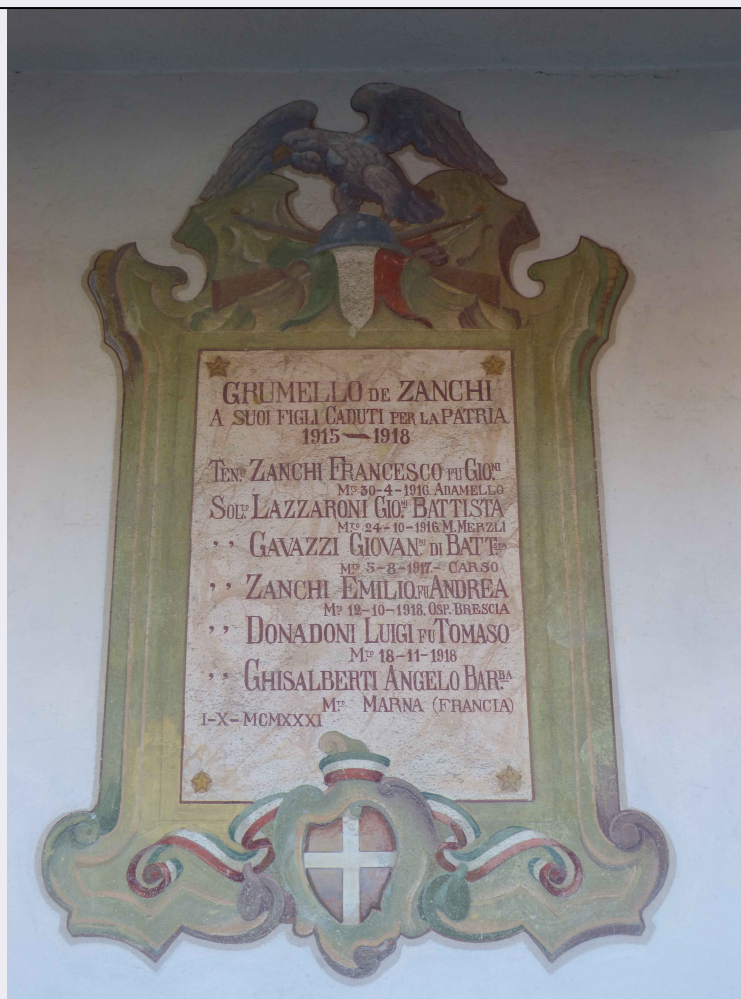 GRUMELLO DE ZANCHI
A SUOI FIGLI CADUTI PER LA PATRIA
1915–1918
TEN.TE ZANCHI FRANCESCO FU GIO.NI
M.TO 30-4-1916. ADAMELLO
SOL.TO LAZZARONI GIO.NI BATTISTA
M.TO 24-10-1916. M. MERZLI
,, GAVAZZI GIOVAN.NI DI BATT.STA
M.TO 5-8-1917- CARSO
,, ZANCHI EMILIO. FU ANDREA
M.TO 12-10-1918. OSP. BRESCIA
,, DONADONI LUIGI FU TOMASO
M.TO 18-11-1918
,, GHISALBERTI ANGELO BAR.BA
M.TO. MARNA (FRANCIA)
I-X-MCMXXXI